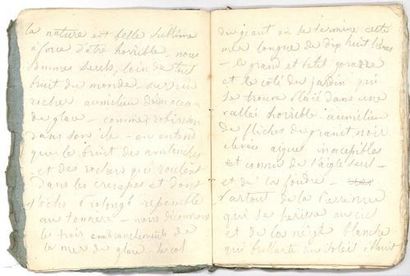 la nature est belle sublime
à force d'être horrible, nous
sommes seuls, loin de tout
bruit du monde sur un
rocher au milieu d'un océan
de glace — comme robinson
dans son ile — on entend
que le bruit des avalanches
et des rochers qui roulent
dans les crevasses et dont
l'écho prolongé ressemble
au tonnerre — nous découvrons
les trois embranchements de
la mer de glace. le col
du géant où se termine cette
mer longue de dix huit lieues
— le grand et petit
et le côté du jardin qui
se trouve placé dans une
vallée horrible au milieu
de flèches de granit noir
élevées aigues inaccessibles
et connues de l'aigle seul —
et de la foudre —
partout de la
qui se perd au ciel
et de la neige blanche
qui brillante au soleil éblouit